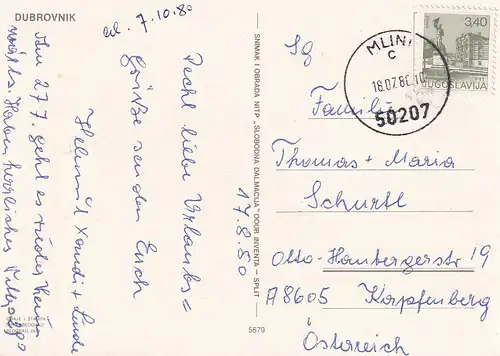 DUBROVNIK
erl. 7.10.80
Recht liebe Urlaubs=
grüße senden Euch
Helmut Xandi + Linde
Am 27.7. geht es wieder heim
wärts. Haben herrliches
SNIMAK I OBRADA NITP „SLOBODNA DALMACIJA" OOUR INVENTA — SPLIT
17.8.80
5679
3,40
JUGOSLAVIJA
MLINI
C
18.07.80.10
50207
SQ
Familie
Thomas + Maria
Schurtl
Otto-Hauberger str 19
A8605 Kapfenberg
Österreich